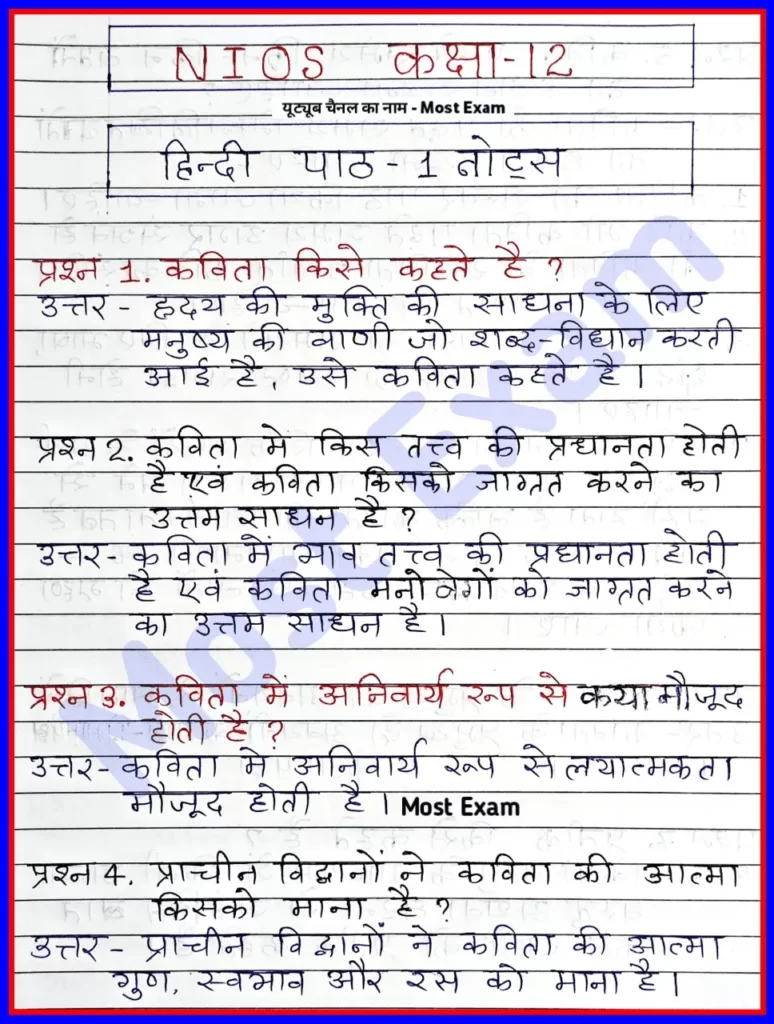 NIOS कक्षा-12
यूट्यूब चैनल का नाम - Most Exam
हिन्दी पाठ - 1 नोट्स
प्रश्न 1. कविता किसे कहते है ?
उत्तर - हृदय की मुक्ति की साधना के लिए
मनुष्य की वाणी जो शब्द-विधान करती
आई है, उसे कविता कहते है ।
प्रश्न 2. कविता मे किस तत्त्व की प्रधानता होती
है एवं कविता किसको जाग्रत करने का
उत्तम साधन है ?
उत्तर- कविता में भाव तत्त्व की प्रधानता होती
है एवं कविता मनोवेगों को जाग्रत करने
का उत्तम साधन है ।
प्रश्न 3. कविता में अनिवार्य रूप से कया मौजूद
होती है ?
उत्तर- कविता मे अनिवार्य रूप से लयात्मकता
मौजूद होती है । Most Exam
प्रश्न 4. प्राचीन विद्वानों ने कविता की आत्मा
किसको माना है ?
उत्तर - प्राचीन विद्वानों ने कविता की आत्मा
गुण, स्वभाव और रस को माना है ।
Most Exam